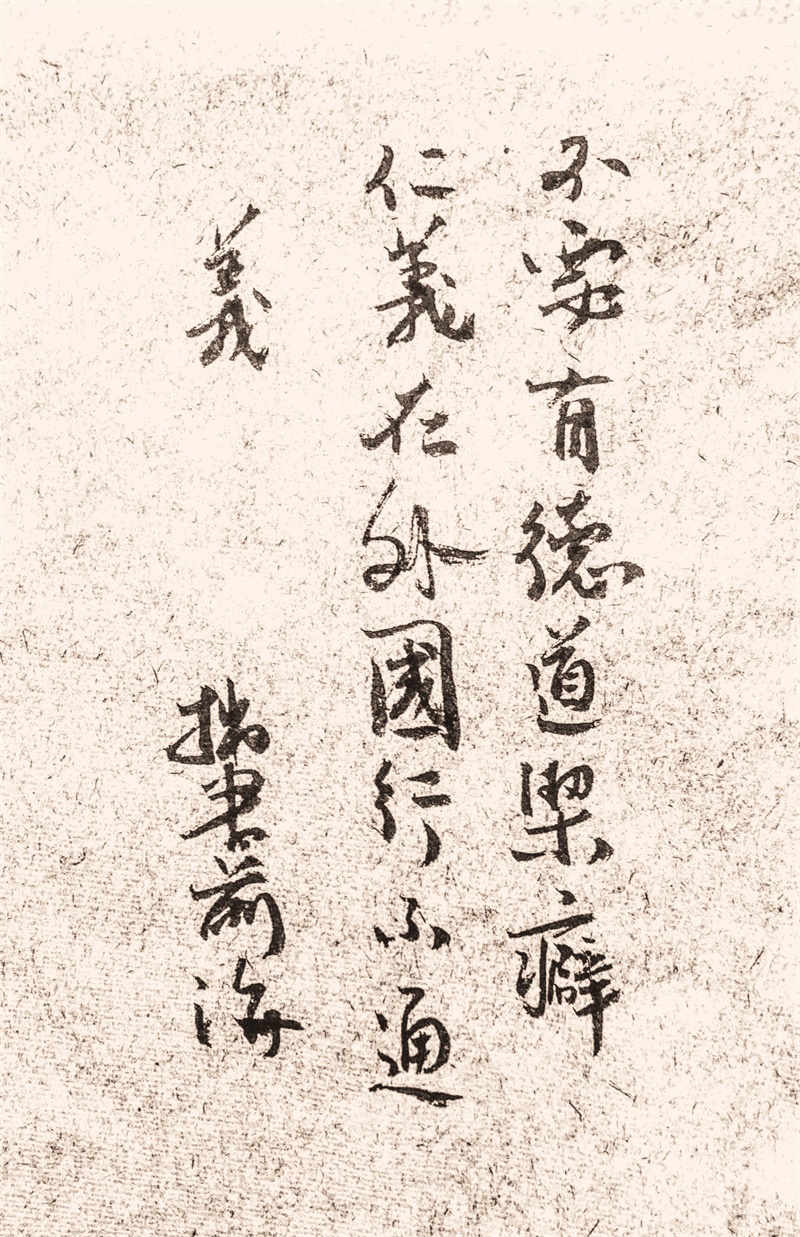 不要有德道潔癖
仁義在外國行不通
義 拙書前海